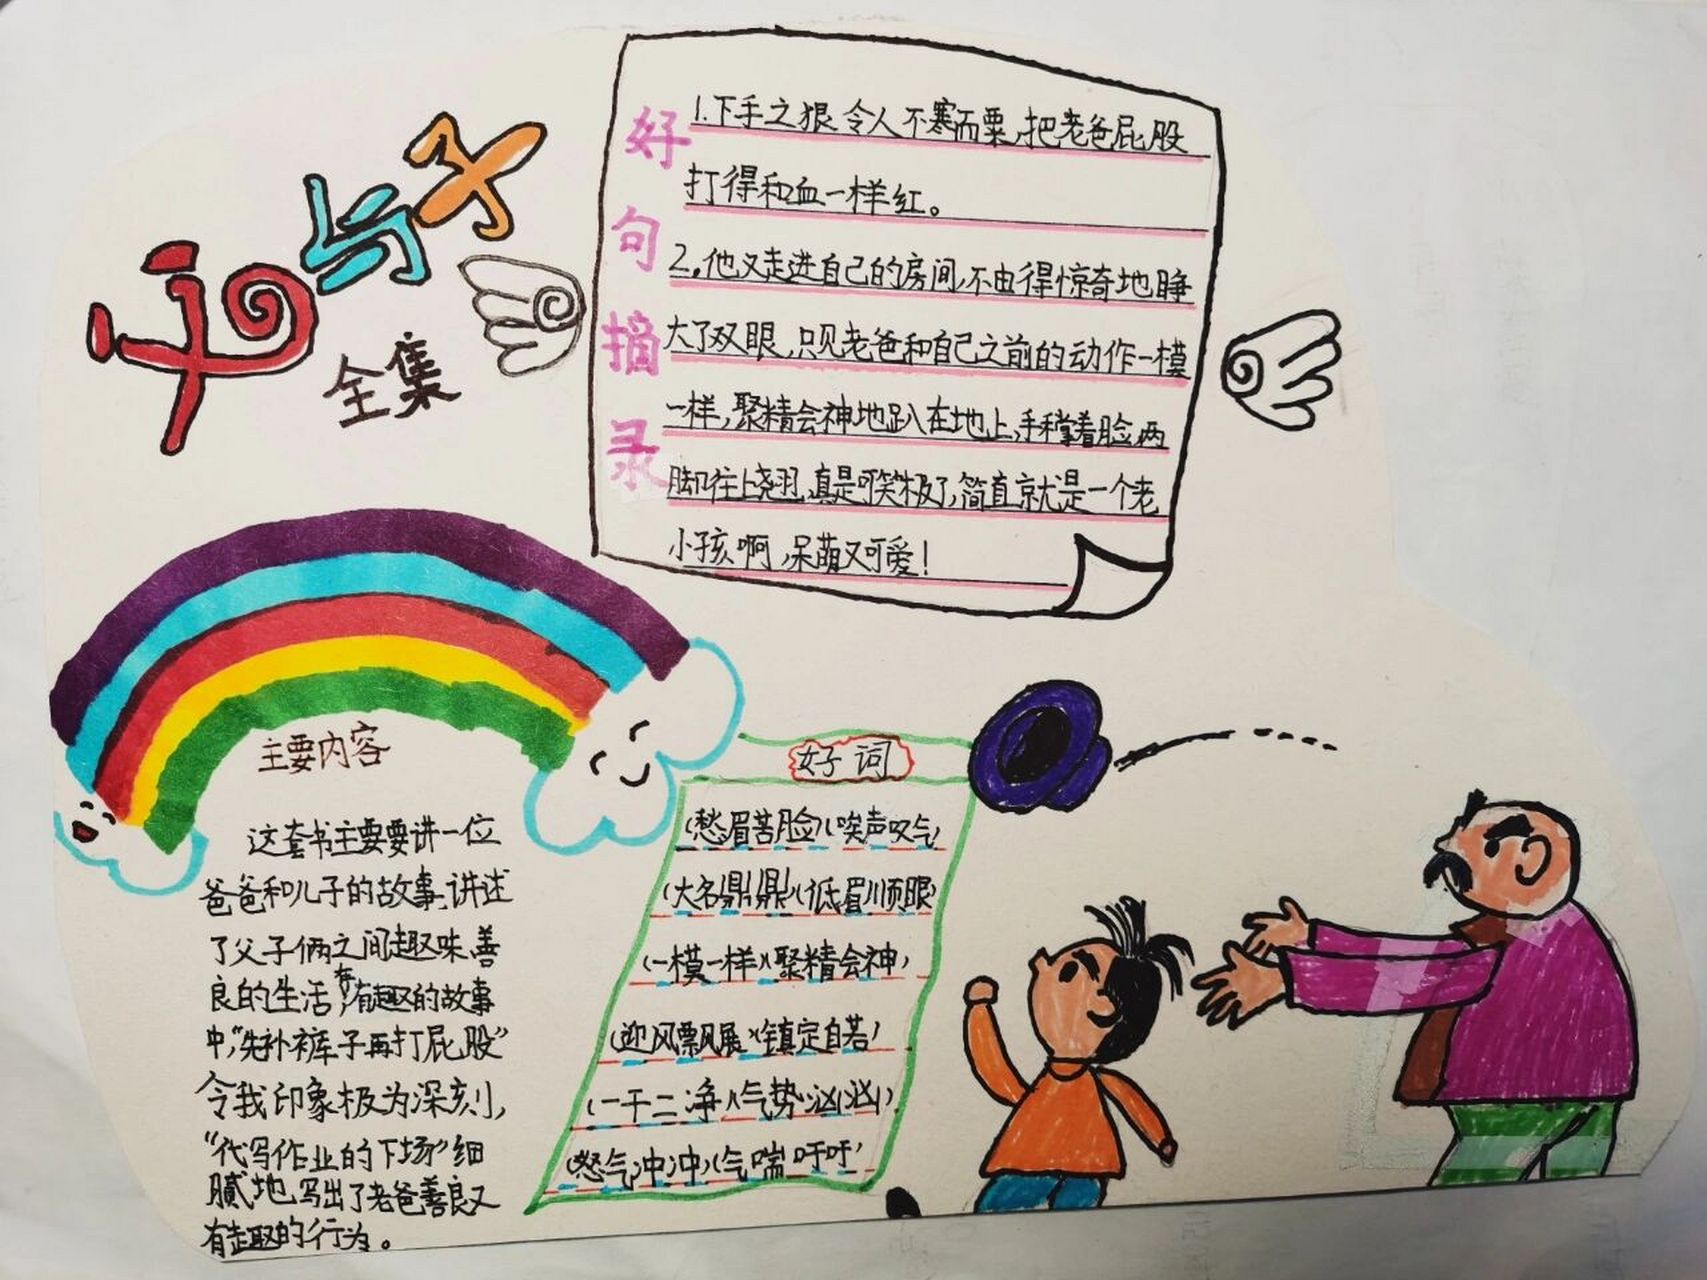 父与子
全集
好句摘录
1.下手之狠,令人不寒而栗,把老爸屁股
打得和血一样红。
2.他又走进自己的房间,不由得惊奇地睁
大了双眼,只见老爸和自己之前的动作一模
一样,聚精会神地趴在地上,手撑着脸,两
脚往上翘,真是可笑极了,简直就是一个老
小孩啊,呆萌又可爱!
主要内容
这套书主要要讲一位
爸爸和儿子的故事,讲述
了父子俩之间趣味,善
良的生活,在有趣的故事
中,“先补裤子再打屁股”
令我印象极为深刻,
“代写作业的下场”细
腻地写出了老爸善良又
有趣的行为。
好词
(愁眉苦脸)(唉声叹气)
(大名鼎鼎)(低眉顺眼)
(一模一样)(聚精会神)
(迎风飘展)(镇定自若)
(一干二净)(气势汹汹)
(怒气冲冲)(气喘吁吁)